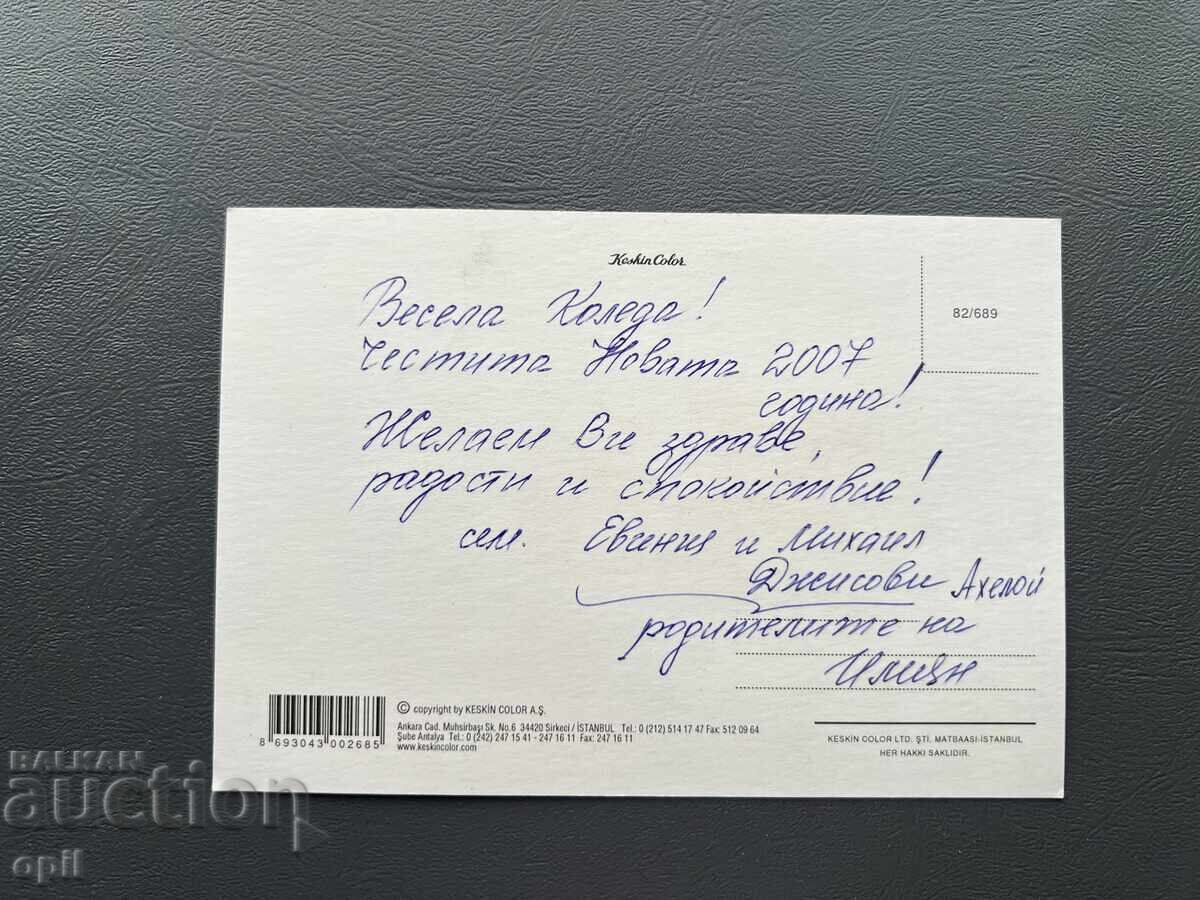 Keskin Color
82/689
Весела Коледа!
Честита Новата 2007
година!
Желаем Ви здраве,
радости и спокойствие!
сем. Евгения и Михаил
Джисови Ахелой
родителите на
Илиян
8 693043 002685
© copyright by KESKİN COLOR A.Ş.
Ankara Cad. Muhsirbaşı Sk. No.6 34420 Sirkeci / İSTANBUL Tel.: 0 (212) 514 17 47 Fax: 512 09 64
Şube Antalya Tel.: 0 (242) 247 15 41 - 247 16 11 Fax: 247 16 11
www.keskincolor.com
KESKIN COLOR LTD. ŞTİ. MATBAASI-İSTANBUL
HER HAKKI SAKLIDIR.
BALKAN
auction
opil